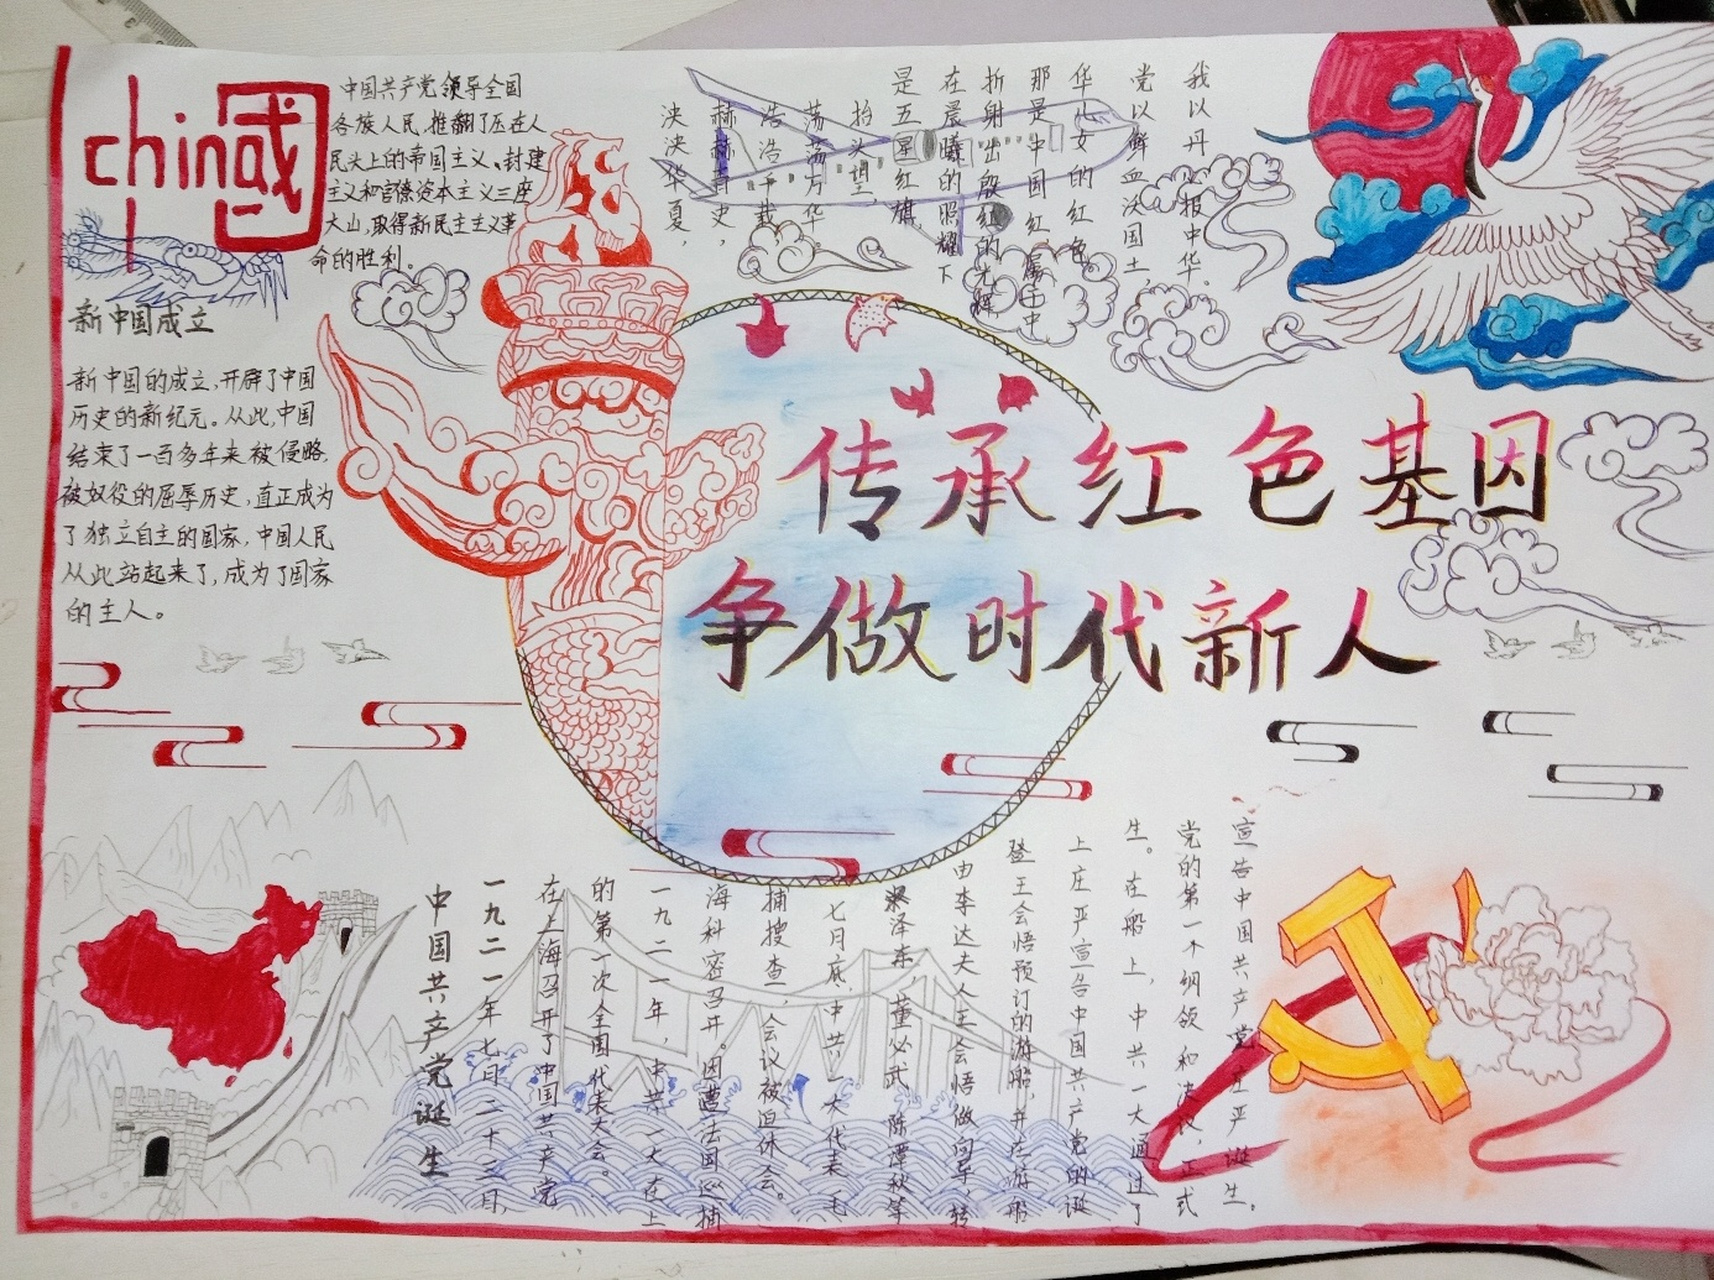 chin國
中国共产党领导全国
各族人民,推翻了压在人
民头上的帝国主义、封建
主义和官僚资本主义三座
大山,取得新民主主义革
命的胜利。
新中国成立
新中国的成立,开辟了中国
历史的新纪元。从此,中国
结束了一百多年来被侵略,
被奴役的屈辱历史,真正成为
了独立自主的国家,中国人民
从此站起来了,成为了国家
的主人。
泱泱华夏,
赫赫有史,
浩浩千载
荡荡万华。
抬头望,
是五星红旗,
在晨曦的照耀下
折射出殷红的光辉
那是中国红,属于中
华儿女的红色。
党以鲜血沃国土,
我以丹心报中华。
传承红色基因
争做时代新人
中国共产党诞生
一九二一年七月二十三日,
在上海召开了中国共产党
的第一次全国代表大会。
一九二一年,中共一大在上
海秘密召开。因遭法国巡捕
捕搜查,会议被迫休会。
七月底,中共一大代表毛
泽东,董必武,陈潭秋等
由李达夫人王会悟做向导,转
登王会悟预订的游船,并在游船
上庄严宣告中国共产党的诞
生。在船上,中共一大通过了
党的第一个纲领和决议,正式
宣告中国共产党庄严诞生。